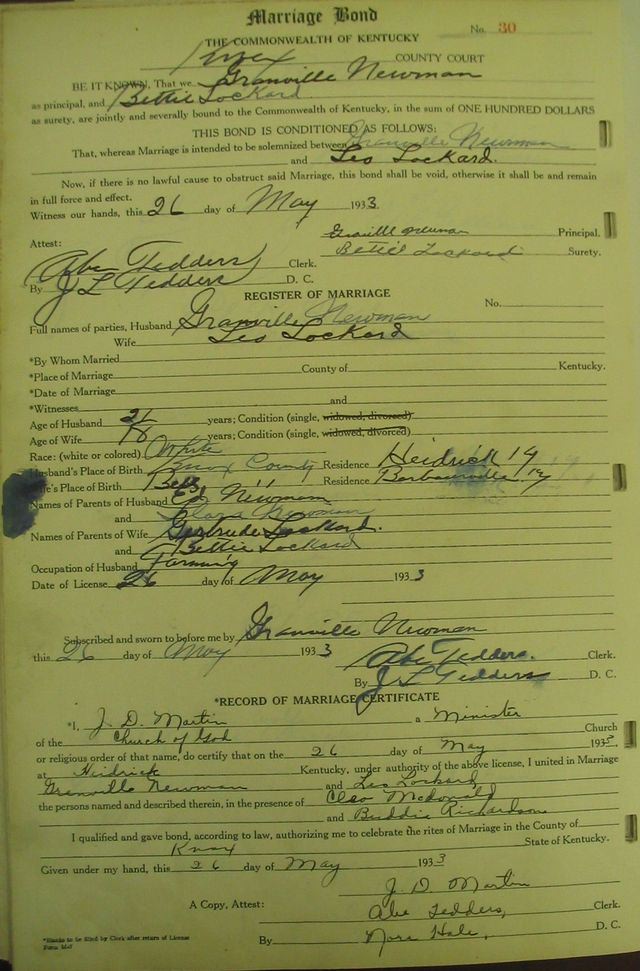 Marriage Bond
No. 30
THE COMMONWEALTH OF KENTUCKY
Knox COUNTY COURT
BE IT KNOWN, That we Granville Newman
as principal, and Bettie Lockard
as surety, are jointly and severally bound to the Commonwealth of Kentucky, in the sum of ONE HUNDRED DOLLARS
THIS BOND IS CONDITIONED AS FOLLOWS:
That, whereas Marriage is intended to be solemnized between Granville Newman
and Leo Lockard.
Now, if there is no lawful cause to obstruct said Marriage, this bond shall be void, otherwise it shall be and remain
in full force and effect.
Witness our hands, this 26 day of May 1933.
Granville Newman Principal.
Attest: Bettie Lockard Surety.
Abe Tedders Clerk.
By J L Tedders D. C.
REGISTER OF MARRIAGE
No.
Full names of parties, Husband Granville Newman
Wife Leo Lockard
*By Whom Married
*Place of Marriage County of Kentucky.
*Date of Marriage
*Witnesses and
Age of Husband 21 years; Condition (single, widowed, divorced)
Age of Wife 18 years; Condition (single, widowed, divorced)
Race: (white or colored) White
Husband's Place of Birth Knox County Residence Heidrick Ky
Wife's Place of Birth Bell " Residence Barbourville Ky
Names of Parents of Husband Ed Newman
and Newman
Names of Parents of Wife Gertrude Lockard.
and Bettie Lockard
Occupation of Husband Farming
Date of License 26 day of May 1933
Subscribed and sworn to before me by Granville Newman
this 26 day of May 1933
Abe Tedders. Clerk.
By J L Tedders D. C.
*RECORD OF MARRIAGE CERTIFICATE
*I, J. D. Martin a Minister
of the Church of God Church
or religious order of that name, do certify that on the 26 day of May 1933
at Heidrick Kentucky, under authority of the above license, I united in Marriage
Granville Newman and Leo Lockard
the persons named and described therein, in the presence of Cleo McDonald
and Buddie Richardson
I qualified and gave bond, according to law, authorizing me to celebrate the rites of Marriage in the County of
Knox State of Kentucky.
Given under my hand, this 26 day of May 1933
J. D. Martin
A Copy, Attest: Abe Tedders, Clerk.
By Nora Hale, D. C.
*Blanks to be filled by Clerk after return of License